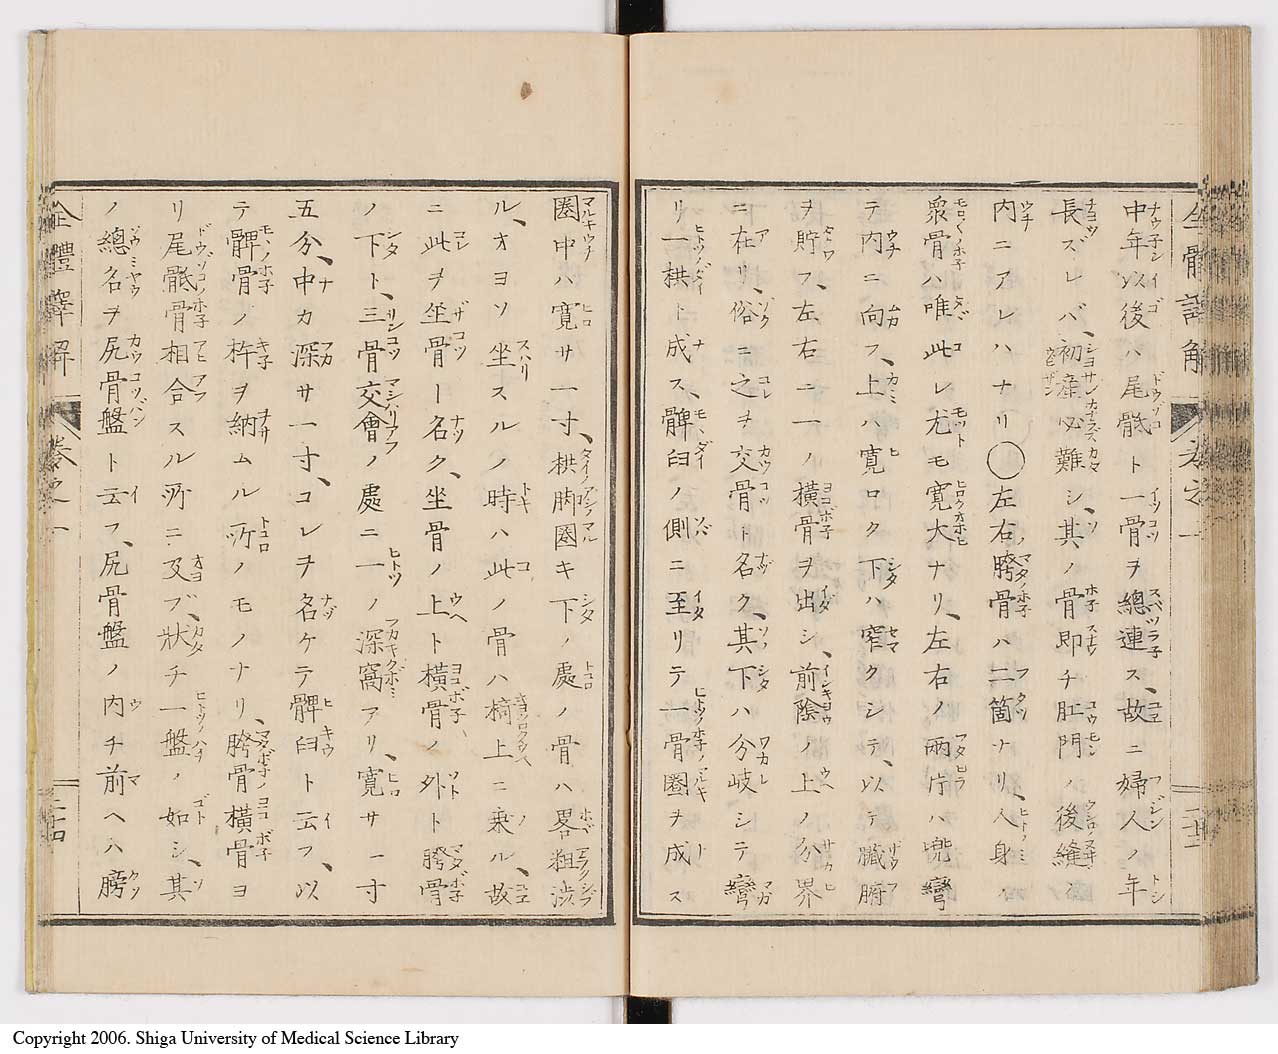 中年以後ハ尾骶ト一骨ヲ總連ス、故ニ婦人ノ年
長ズレバ、初産必難シ、其ノ骨即チ肛門ノ後縫ノ
内ニアレハナリ◯左右胯骨ハ二箇ナリ、人身ノ
衆骨ハ唯此レ尤モ寛大ナリ、左右ノ兩片ハ兜彎
テ内ニ向フ、上ハ寛ロク下ハ窄クシテ、以テ臟腑
ヲ貯フ、左右ニ一ノ横骨ヲ出シ、前陰ノ上ノ分界
ニ在リ、俗ニ之ヲ交骨ト名ク、其下ハ分岐シテ彎
リ一栱ト成ス、髀臼ノ側ニ至リテ一骨圏ヲ成ス
圏中ハ寛サ一寸、栱脚圏キ下ノ處ノ骨ハ畧粗澁
ル、オヨソ坐スルノ時ハ此ノ骨ハ椅上ニ乗ル、故
ニ此ヲ坐骨ト名ク、坐骨ノ上ト横骨ノ外ト胯骨
ノ下ト、三骨交會ノ處ニ一ノ深窩アリ、寛サ一寸
五分、中カ深サ一寸、コレヲ名ケテ髀臼ト云フ、以
テ髀骨ノ杵ヲ納ムル所ノモノナリ、胯骨横骨ヨ
リ尾骶骨相合スル所ニ及ブ、狀チ一盤ノ如シ、其
ノ總名ヲ尻骨盤ト云フ、尻骨盤ノ内チ前ヘハ膀
全體譯解
卷之一
二十四
Copyright 2006. Shiga University of Medical Science Library